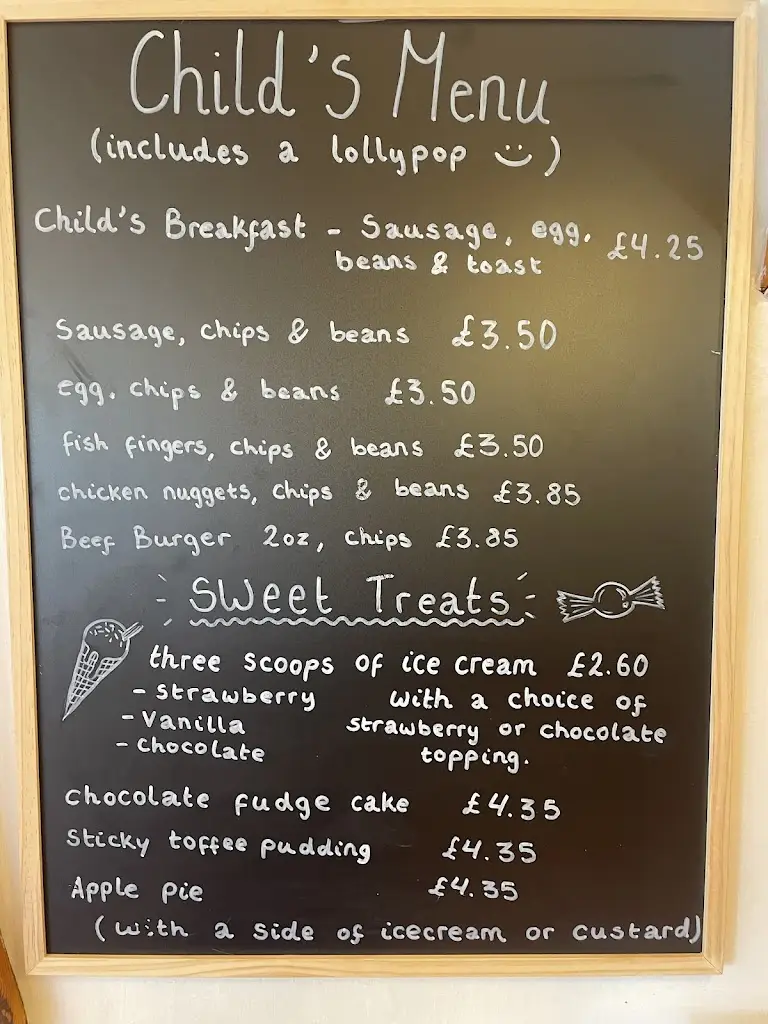 Child's Menu
(includes a lollypop :))
Child's Breakfast - Sausage, egg, £4.25
beans & toast
Sausage, chips & beans £3.50
egg, chips & beans £3.50
fish fingers, chips & beans £3.50
chicken nuggets, chips & beans £3.85
Beef Burger 2oz, chips £3.85
Sweet Treats
three scoops of ice cream £2.60
- strawberry with a choice of
- vanilla strawberry or chocolate
- chocolate topping.
chocolate fudge cake £4.35
Sticky toffee pudding £4.35
Apple pie £4.35
(with a side of icecream or custard)